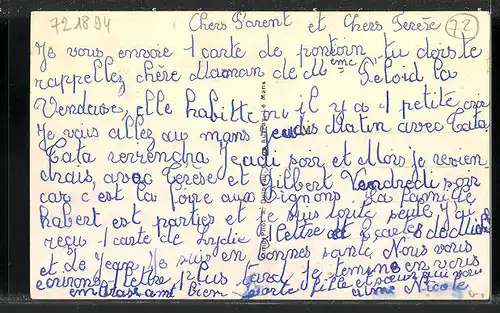 721894
72
Chers Parent et Chers Terese
Je vous envoie 1 carte de tu dois te
rappellez chère Maman de Mme Peloid la
Vendeuse, elle habitte ou il y a 1 petite
Je vous allez au mans jeudis Matin avec Tata
Tata reviendra Jeudi soir et Moi je revien
drais, avec Terese et Gilbert Vendredi soir
car c'est la foire aux Oignons. La famille
habert est parties et je suis toute seule J'ai
reçu 1 carte de Lydie 1 lettre et cartes de
et de Jean Je suis en bonnes santé Nous vous
ecrirons 1 lettre plus tard je termine en vous
embrasant bien votre fille et sœur qui vous
aime Nicole